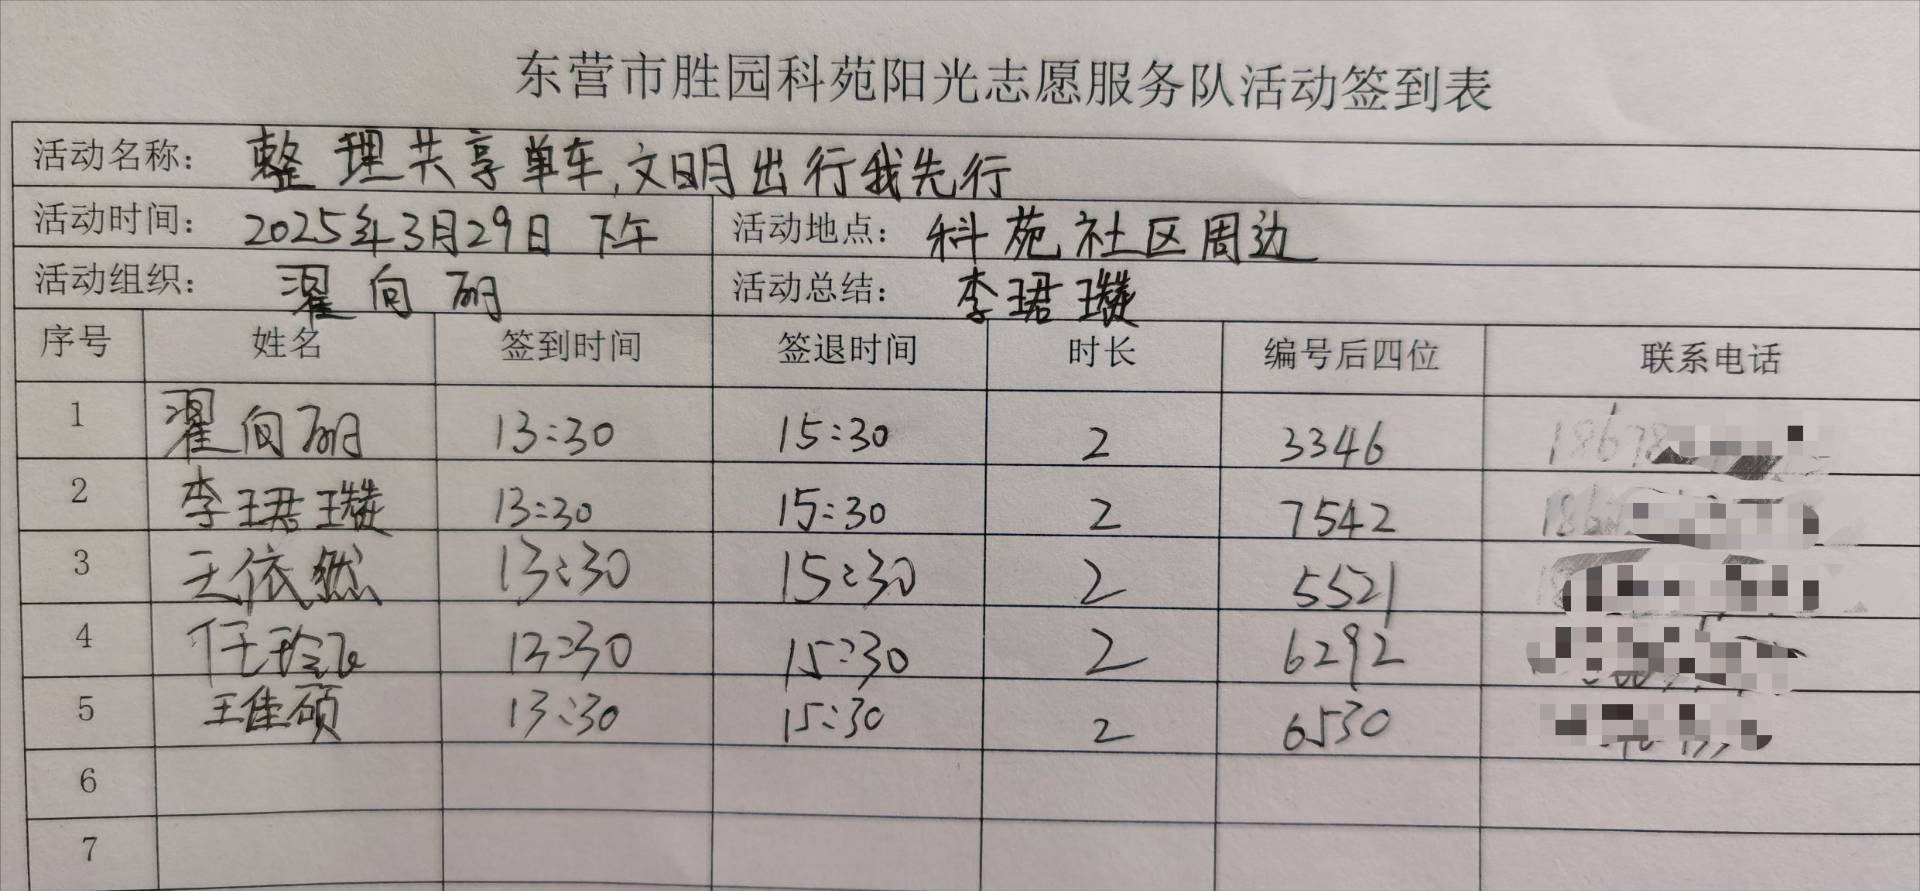 东营市胜园科苑阳光志愿服务队活动签到表
活动名称： 整理共享单车,文明出行我先行
活动时间： 2025年3月29日 下午 活动地点： 科苑社区周边
活动组织： 翟向丽 活动总结： 李珺璨
序号 姓名 签到时间 签退时间 时长 编号后四位 联系电话
1 翟向丽 13:30 15:30 2 3346 18678
2 李珺璨 13:30 15:30 2 7542 1867
3 王依然 13:30 15:30 2 5521
4 任玲飞 13:30 15:30 2 6292
5 王佳硕 13:30 15:30 2 6530
6
7